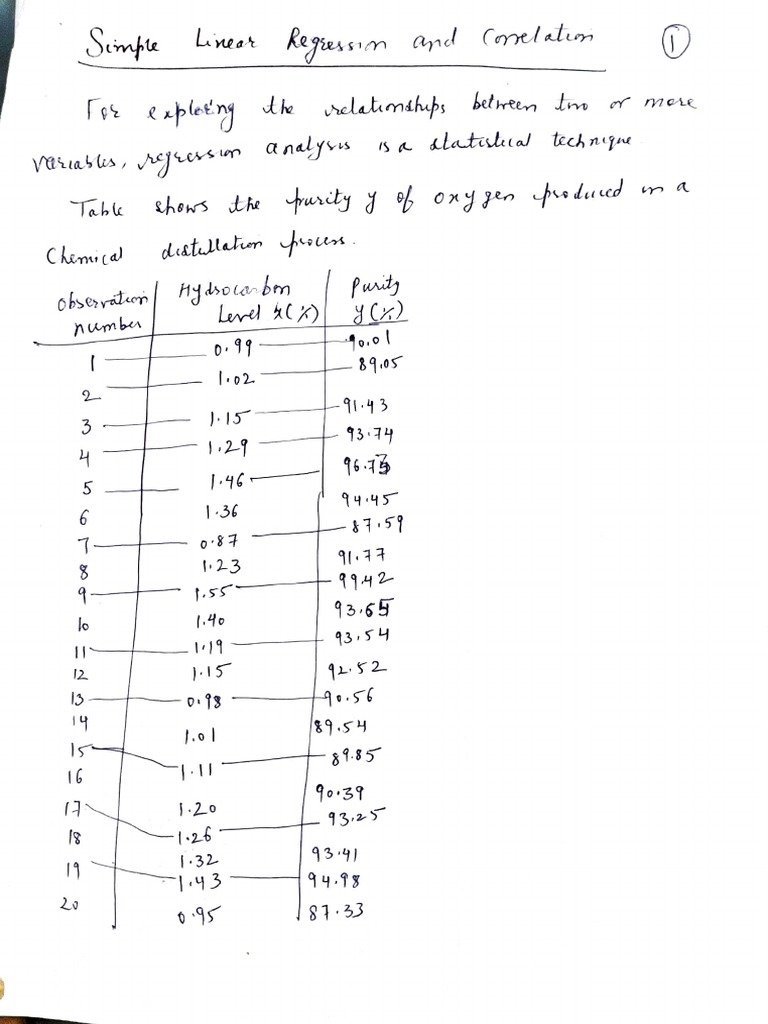 Simple Linear Regression and Correlation ①
For exploring the relationships between two or more
variables, regression analysis is a statistical technique.
Table shows the purity y of oxygen produced in a
Chemical distillation process.
Observation number | Hydrocarbon Level x(%) | Purity y(%)
1 0.99 90.01
2 1.02 89.05
3 1.15 91.43
4 1.29 93.74
5 1.46 96.73
6 1.36 94.45
7 0.87 87.59
8 1.23 91.77
9 1.55 99.42
10 1.40 93.65
11 1.19 93.54
12 1.15 92.52
13 0.98 90.56
14 1.01 89.54
15 1.11 89.85
16 1.20 90.39
17 1.26 93.25
18 1.32 93.41
19 1.43 94.98
20 0.95 87.33